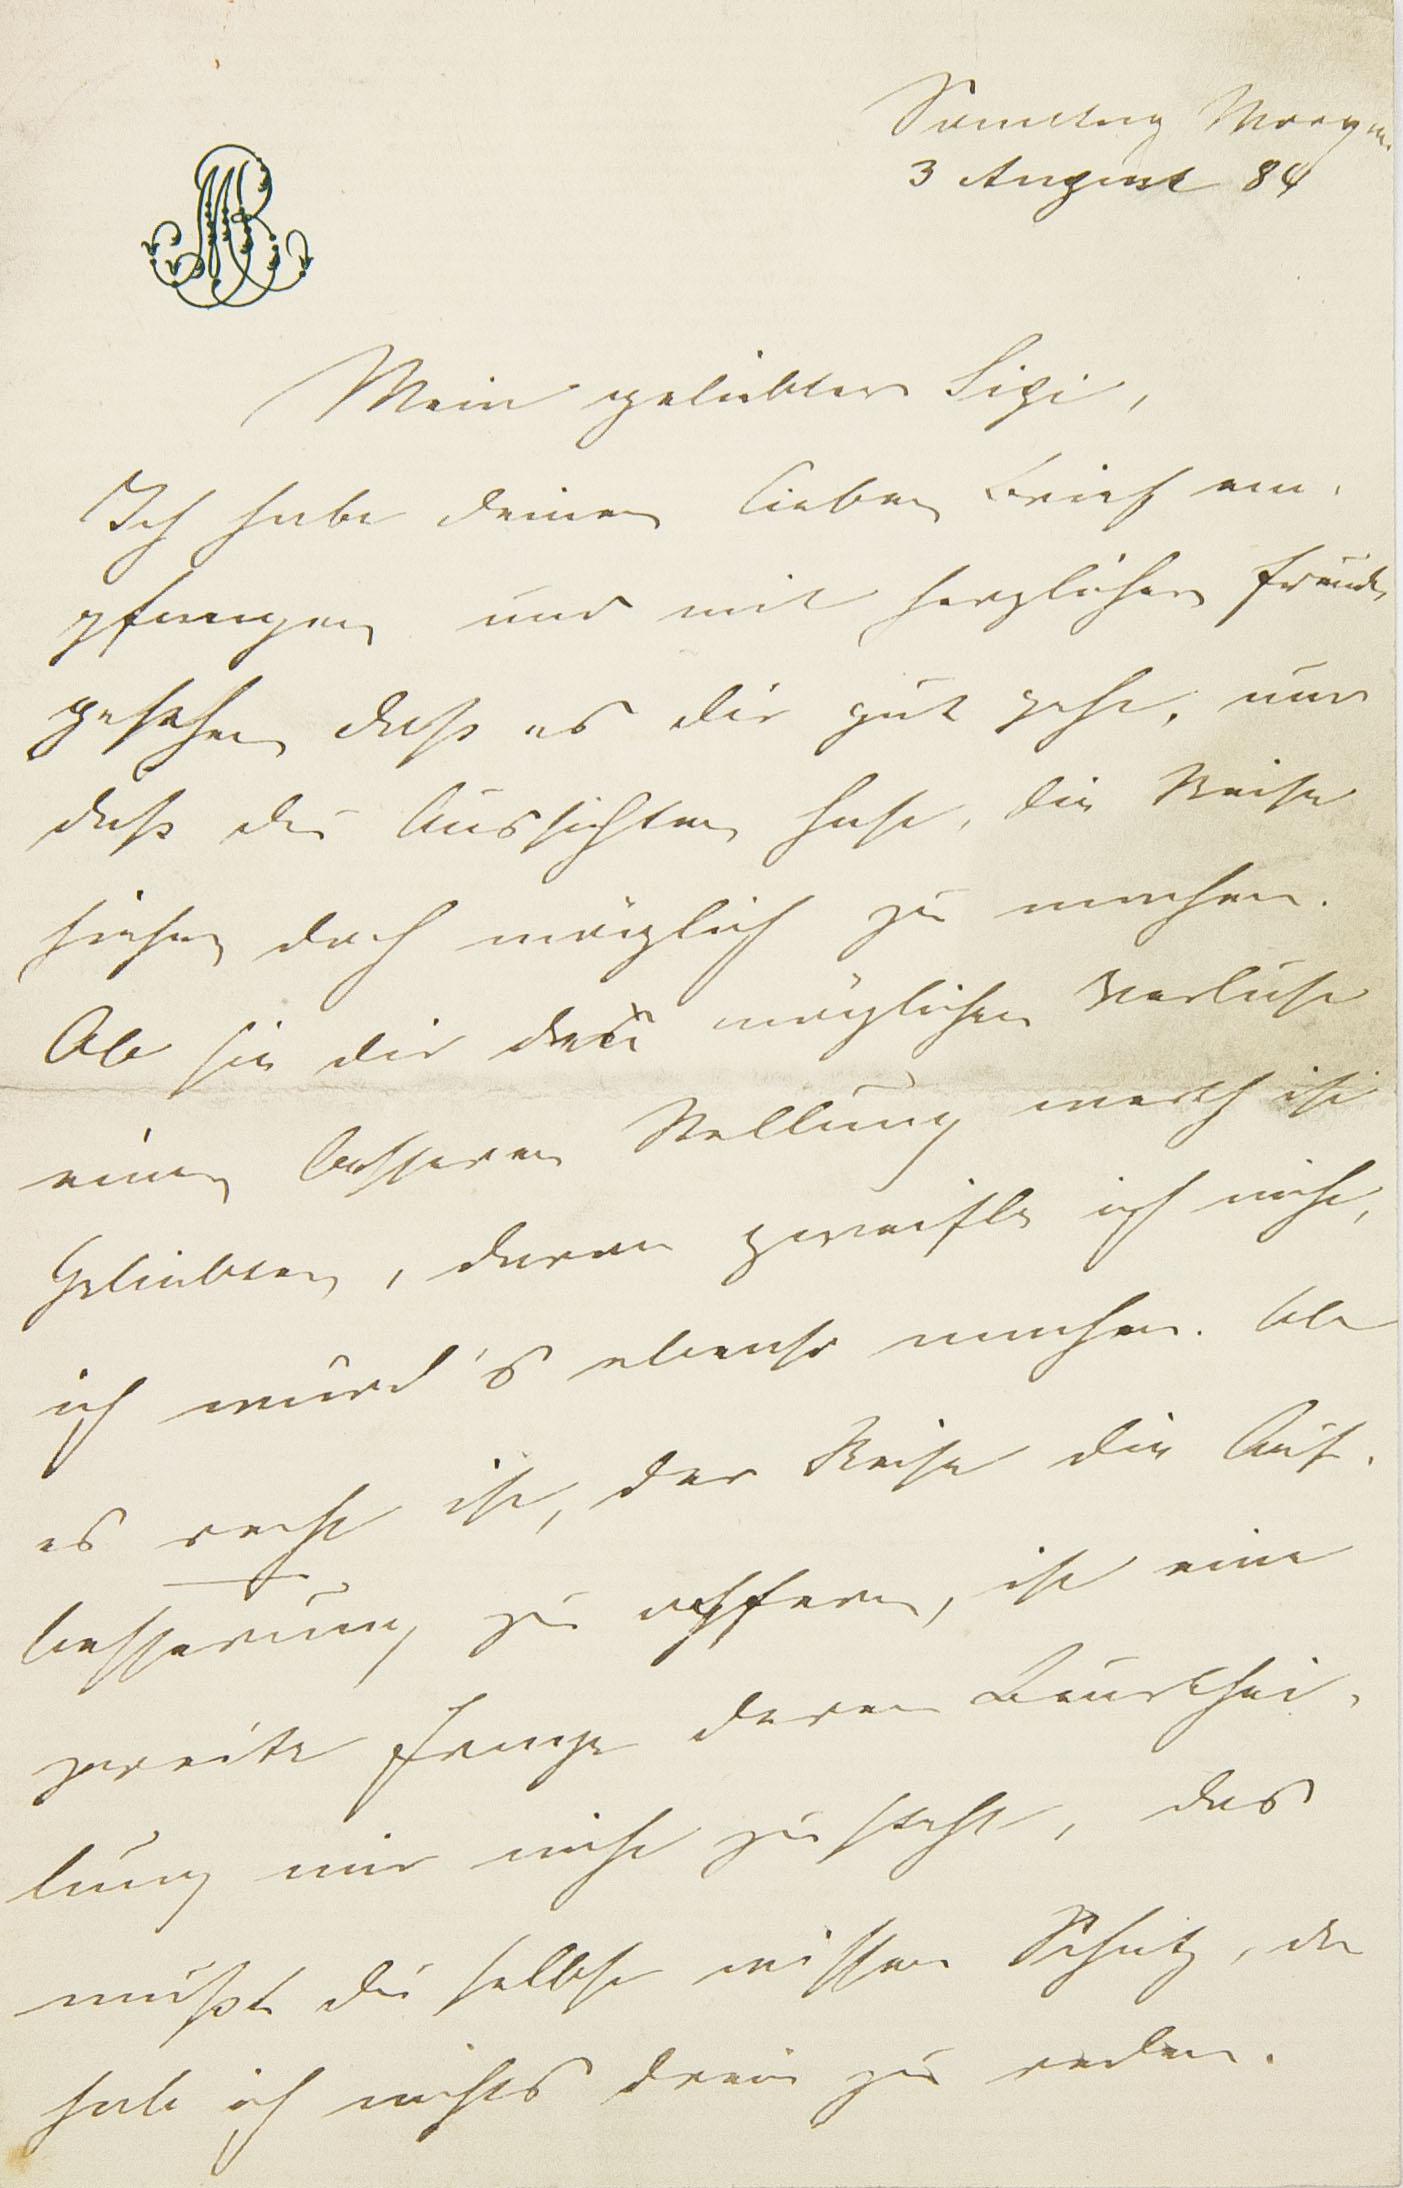 MB
Sonntag Morgen
3 August 84
Mein geliebter Sigi,
Ich habe deinen lieben Brief em-
pfangen und mit herzlicher Freude
gesehen daß es dir gut geht, und
daß du Aussichten hast, die Reise
hieher doch möglich zu machen.
Ob sie dir den möglichen Verlust
einer besseren Stellung werth ist
Geliebter, daran zweifle ich nicht,
ich würd's ebenso machen. Ob
es recht ist, der Reise die Auf-
besserung zu opfern, ist eine
zweite Frage deren Beurthei-
lung mir nicht zusteht, das
mußt du selbst wissen Schatz, da
hab ich nichts drein zu reden.